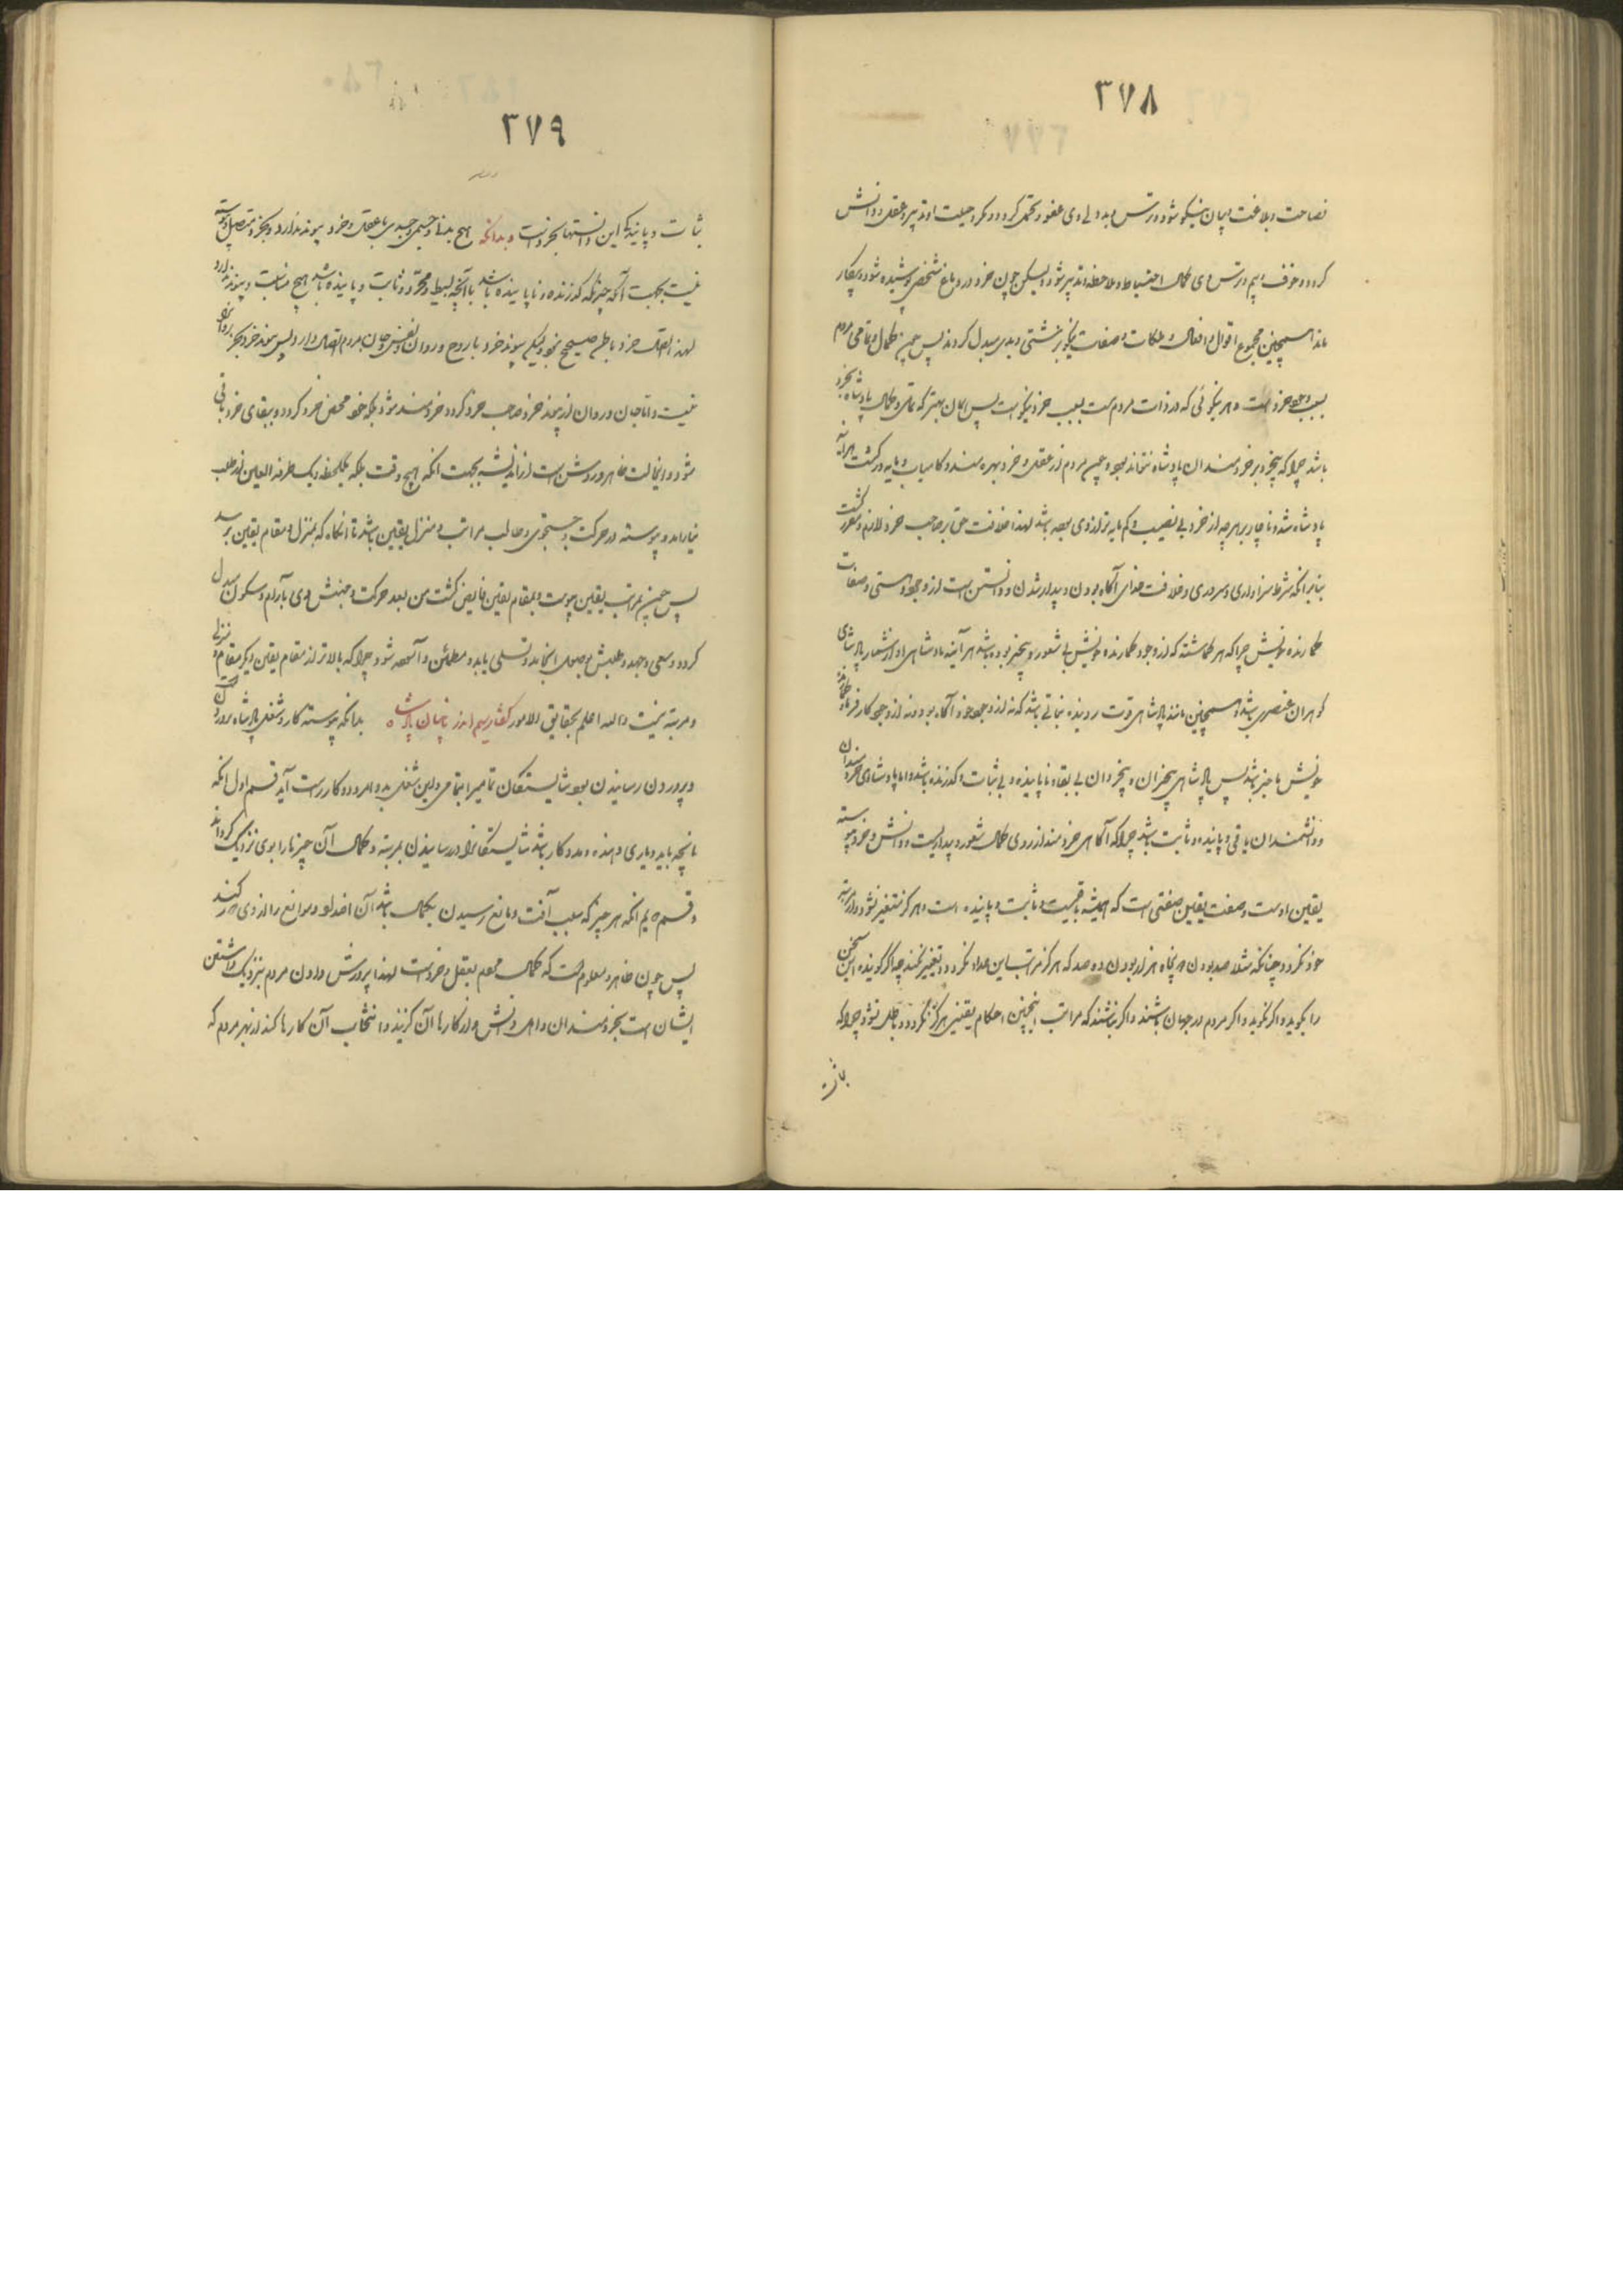 ۳۷۸
فصاحت و بلاغت بیان نیکو شود و ترس و بددلی وی عفو و تحمل گردد و مکر و حیلت او تدبیر و عقل و دانش
گردد و خوف و بیم و ترس وی کمال احتیاط و ملاحظه و تدبیر شود و لیکن چون خرد در دماغ شخصی پوشیده شود و بیکار
ماند همچنین مجموع اقوال و افعال و ملکات و صفات نیکو بزشتی و بدی مبدل گردند پس چون کمال و تمامی مردم
بسبب وجود خرد است و هر نیکوئی که در ذات مردم است بسبب خرد نیکو است پس همان بهتر که تمامی و کمال پادشاه بخرد
باشد چرا که بیخرد بر خردمندان پادشاه نتواند بود و چون مردم از عقل و خرد بهره مند و کامیاب و مایه ور گشت هر آینه
پادشاه شد و ناچار بر هر چه از خرد بی نصیب و کم مایه تر از وی بود باشد لهذا خلافت حق بر صاحب خرد لازم و مقرر گشت
بنابر آنکه شرط سزاواری و سروری و خلافت خدای آگاه بودن و بیدار شدن و دانستن است از وجود و هستی و صفات
گمارنده خویش چرا که هر گماشته که از وجود گمارنده خویش بی شعور و بیخبر بوده باشد هر آینه پادشاهی او از شمار پادشاهی
گوهران عنصری باشد و همچنین مانند پادشاهی قوت روینده نباتی باشد که نه از وجود خود آگاه بود و نه از وجود کارفرما و گمارنده
خویش با خبر باشد پس پادشاهی بیخبران و بیخردان بی بقا و ناپاینده و بی ثبات و گذرنده باشد و اما پادشاهی خردمندان
و دانشمندان باقی و پاینده و ثابت باشد چرا که آگاهی خردمند از روی کمال شعور و بیداریست و دانش و خرد پیوسته
یقین اوست و صفت یقین صفتی است که همیشه باقیست و ثابت و پاینده است و هرگز متغیر نشود و از مرتبه
خود نگردد چنانکه مثلا صد بودن و پنجاه هزار بودن و ده صد که هرگز مراتب این عداد نگردد و تغییر نکند چه اگر گوینده این سخن
را بگوید و اگر نگوید و اگر مردم در جهان باشند و اگر نباشند که مراتب اینچنین احکام یقینی هرگز نگردد و باطل نشود چرا که
ثبات
۳۷۹
ثبات و پایندگی این دانستنها بخرد است و بدانکه هیچ بدنا و جسمی و جسدی با عقل و خرد پیوند ندارد و بخرد متصل و پیوسته
نیست بجهت آنکه چیزیکه گذرنده و ناپاینده باشد با آنچه بسیط و مجرد و ثابت و پاینده باشد هیچ مناسبت و پیوند ندارد
لهذا اتصال خرد با جسم صحیح نبود و لیکن پیوند خرد با روح و روان و نفس و جان مردم اتصال دارد و لیس پیوند خرد بجز با روان
نیست و تا جان و روان از پیوند خرد صاحب خرد گردد و خردمند شود بلکه خود محض خرد گردد و ببقای خرد باقی
شود و اینحالت ظاهر و روشن است از اندیشه بجهت آنکه هیچ وقت بلکه یکلحظه و یک طرفة العین از طلب
نیاراید و پیوسته در حرکت و جستجوی و طالب مراتب و منزل یقین باشد تا آنگاه که بمنزل و مقام یقین برسد
پس چون بمراتب یقین پیوست و بمقام یقین فایض گشت من بعد حرکت و جنبش وی بآرام و سکون مبدل
گردد و سعی و جهد و طلبش بوصول انجامد و تسلی یابد و مطمئن و آسوده شود چرا که بالاتر از مقام یقین دیگر مقام و منزلی
و مرتبه نیست والله اعلم بحقایق الامور گفتار سیم اندر بیان پادشاه بدانکه پیوسته کار و شغل پادشاه پروردن
و پروردن رسانیدن بود شایستگان تمامیرا بتمامی و این شغل بدو امر و دو کار راست آید قسم اول آنکه
بآنچه باید و یاری دهنده و مددکار باشد شایستگانرا در رسانیدن بمرتبه و کمال آن چیزها را بوی نزدیک گرداند
و قسم دویم آنکه هر چیز که سبب آفت و مانع رسیدن بکمال باشد آن اضداد و موانع را از وی دور کند
پس چون ظاهر و معلوم گشت که کمال مردم بعقل و خرد است لهذا پرورش دادن مردم بنزدیک داشتن
ایشان است بخردمندان و اهل دانش و از کارها آن گزیند و انتخاب آن کارها کند از بهر مردم که